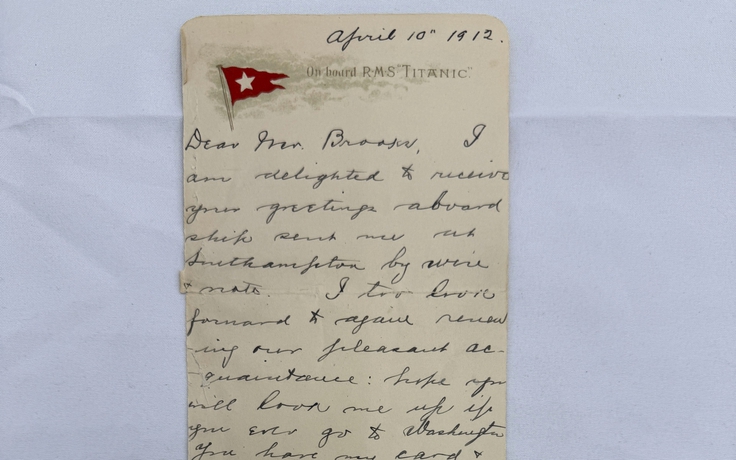 April 10" 1912.
On board R.M.S "TITANIC."
Dear Mr. Brooks, I
am delighted to receive
your greetings aboard
ship sent me at
Southampton by wire
& note. I too look
forward to again renew
-ing our pleasant ac-
quaintance: hope you
will look me up if
you ever go to Washington
You have my card &